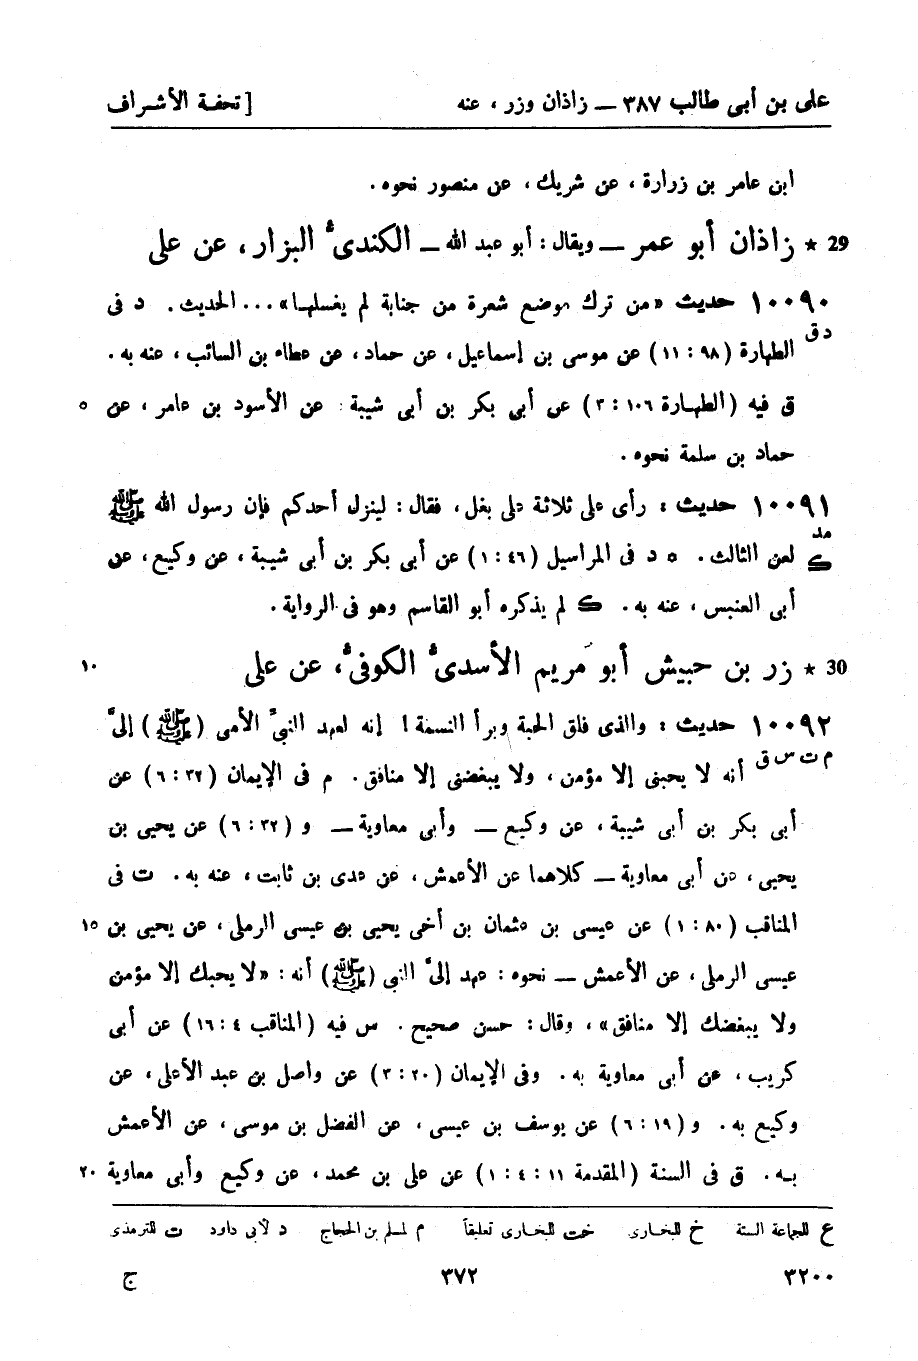 على بن أبى طالب ٣٨٧ — زاذان وزر ، عنه [ تحفة الأشراف
ابن عامر بن زرارة ، عن شريك ، عن منصور نحوه .
29 * زاذان أبو عمر — ويقال : أبو عبد الله — الكندىّ البزار ، عن على
١٠٠٩٠ حديث «من ترك موضع شعرة من جنابة لم يغسلها» ... الحديث . د فى
د ق
الطهارة (٩٨ : ١١) عن موسى بن إسماعيل ، عن حماد ، عن عطاء بن السائب ، عنه به .
ق فيه (الطهارة ١٠٦ : ٣) عن أبى بكر بن أبى شيبة عن الأسود بن عامر ، عن ٥
حماد بن سلمة نحوه .
١٠٠٩١ حديث : رأى على ثلاثة على بغل ، فقال : لينزل أحدكم فإن رسول الله ﷺ
مد
ك لعن الثالث . ٥ د فى المراسيل (٤٦ : ١) عن أبى بكر بن أبى شيبة ، عن وكيع ، عن
أبى العنبس ، عنه به . ك لم يذكره أبو القاسم وهو فى الرواية .
30 * زر بن حبيش أبو مريم الأسدىّ الكوفىّ ، عن على ١٠
١٠٠٩٢ حديث : والذى فلق الحبة وبرأ النسمة ! إنه لعهد النبىّ الأمى (ﷺ) إلىّ
م ت س ق
أنه لا يحبنى إلا مؤمن ، ولا يبغضنى إلا منافق . م فى الإيمان (٣٢ : ٦) عن
أبى بكر بن أبى شيبة ، عن وكيع — وأبى معاوية — و (٣٢ : ٦) عن يحيى بن
يحيى ، عن أبى معاوية — كلاهما عن الأعمش ، عن عدى بن ثابت ، عنه به . ت فى
المناقب (٨٠ : ١) عن عيسى بن عثمان بن أخى يحيى بن عيسى الرملى ، عن يحيى بن ١٥
عيسى الرملى ، عن الأعمش — نحوه : عهد إلىّ النبى (ﷺ) أنه : «لا يحبك إلا مؤمن
ولا يبغضك إلا منافق» ، وقال : حسن صحيح . س فيه (المناقب ٤ : ١٦) عن أبى
كريب ، عن أبى معاوية به . وفى الإيمان (٢٠ : ٣) عن واصل بن عبد الأعلى ، عن
وكيع به . و (١٩ : ٦) عن يوسف بن عيسى ، عن الفضل بن موسى ، عن الأعمش
به . ق فى السنة (المقدمة ١١ : ٤ : ١) عن على بن محمد ، عن وكيع وأبى معاوية ٢٠
ع للجماعة الستة خ للبخارى خت للبخارى تعليقاً م لمسلم بن الحجاج د لأبى داود ت للترمذى
٣٢٠٠ ٣٧٢ ج